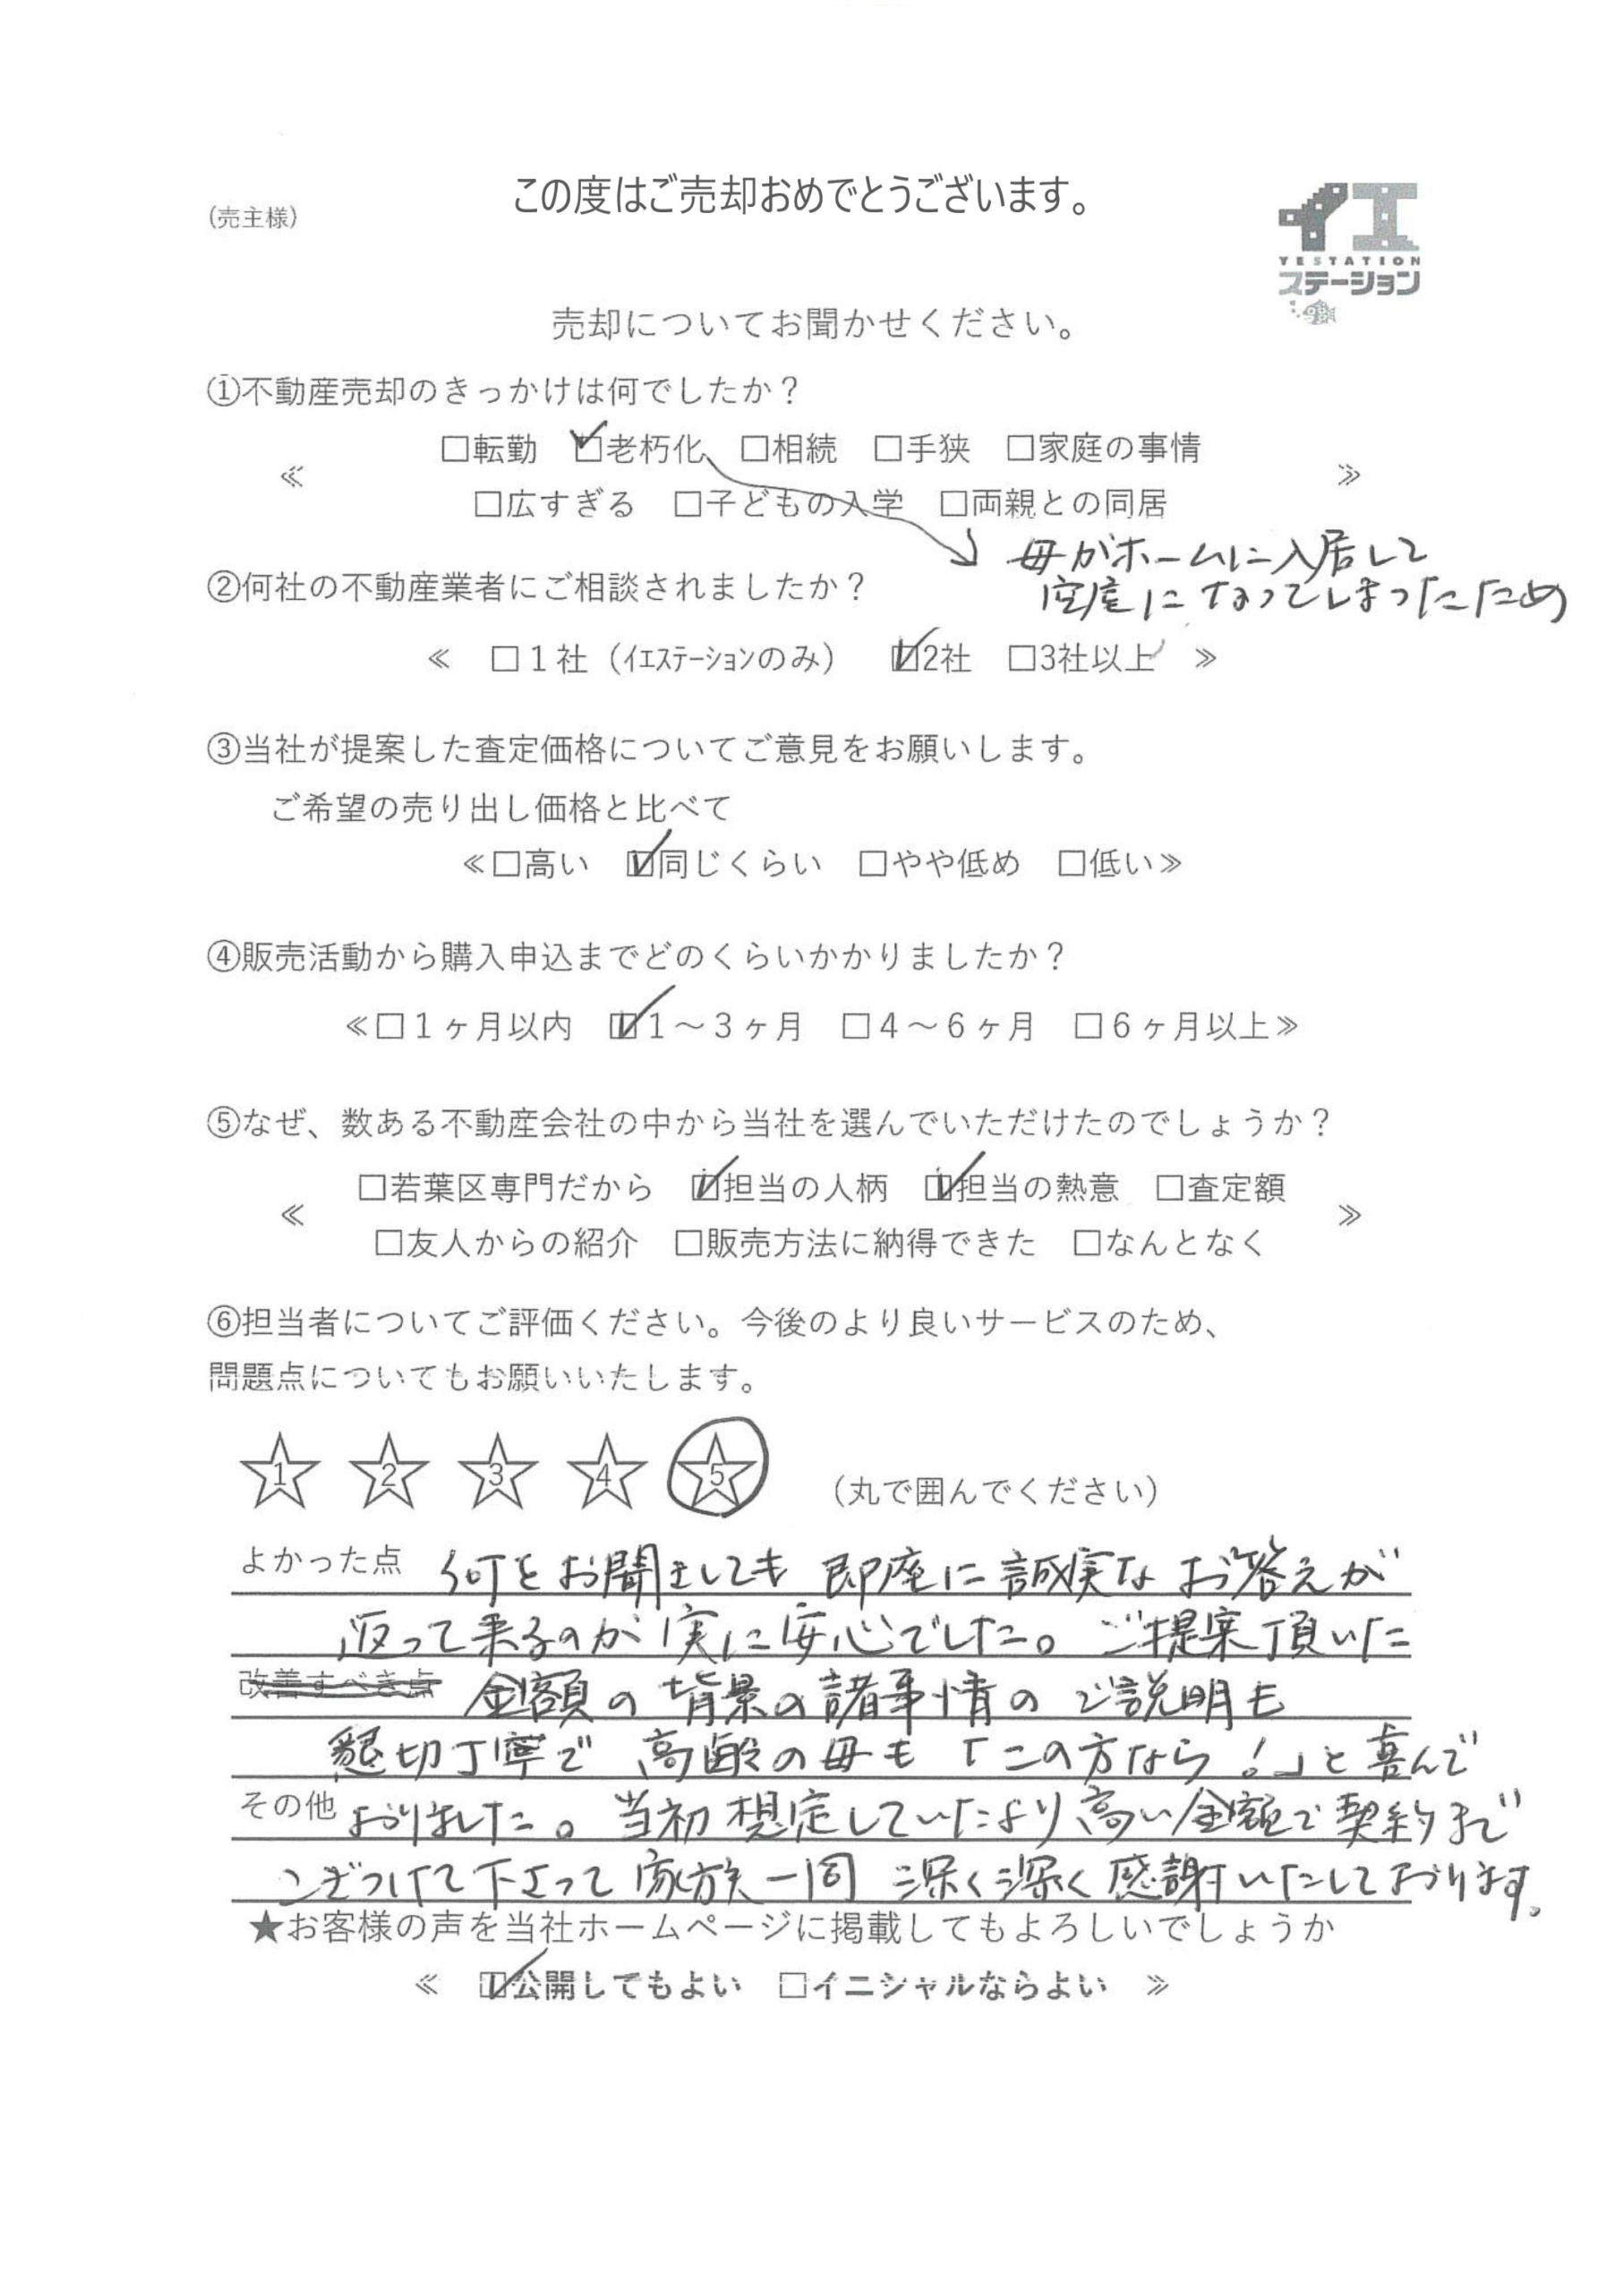 この度はご売却おめでとうございます。
(売主様)
イエ
YESTATION
ステーション
売却についてお聞かせください。
①不動産売却のきっかけは何でしたか？
□転勤 ☑老朽化 □相続 □手狭 □家庭の事情
≪ ≫
□広すぎる □子どもの入学 □両親との同居
母がホームに入居して
空屋になってしまったため
②何社の不動産業者にご相談されましたか？
≪ □１社（ｲｴｽﾃｰｼｮﾝのみ） ☑2社 □3社以上 ≫
③当社が提案した査定価格についてご意見をお願いします。
ご希望の売り出し価格と比べて
≪□高い ☑同じくらい □やや低め □低い≫
④販売活動から購入申込までどのくらいかかりましたか？
≪□１ヶ月以内 ☑１～３ヶ月 □４～６ヶ月 □６ヶ月以上≫
⑤なぜ、数ある不動産会社の中から当社を選んでいただけたのでしょうか？
□若葉区専門だから ☑担当の人柄 ☑担当の熱意 □査定額
≪ ≫
□友人からの紹介 □販売方法に納得できた □なんとなく
⑥担当者についてご評価ください。今後のより良いサービスのため、
問題点についてもお願いいたします。
1 2 3 4 5 （丸で囲んでください）
よかった点 何をお聞きしても 即座に誠実な お答えが
返って来るのが 実に安心でした。ご提案頂いた
改善すべき点 金額の 背景の諸事情の ご説明も
懇切丁寧で 高齢の母も「この方なら！」と喜んで
その他 おりました。当初 想定していたより高い金額で契約まで
こぎつけて下さって 家族一同 深く深く感謝いたしております。
★お客様の声を当社ホームページに掲載してもよろしいでしょうか
≪ ☑公開してもよい □イニシャルならよい ≫